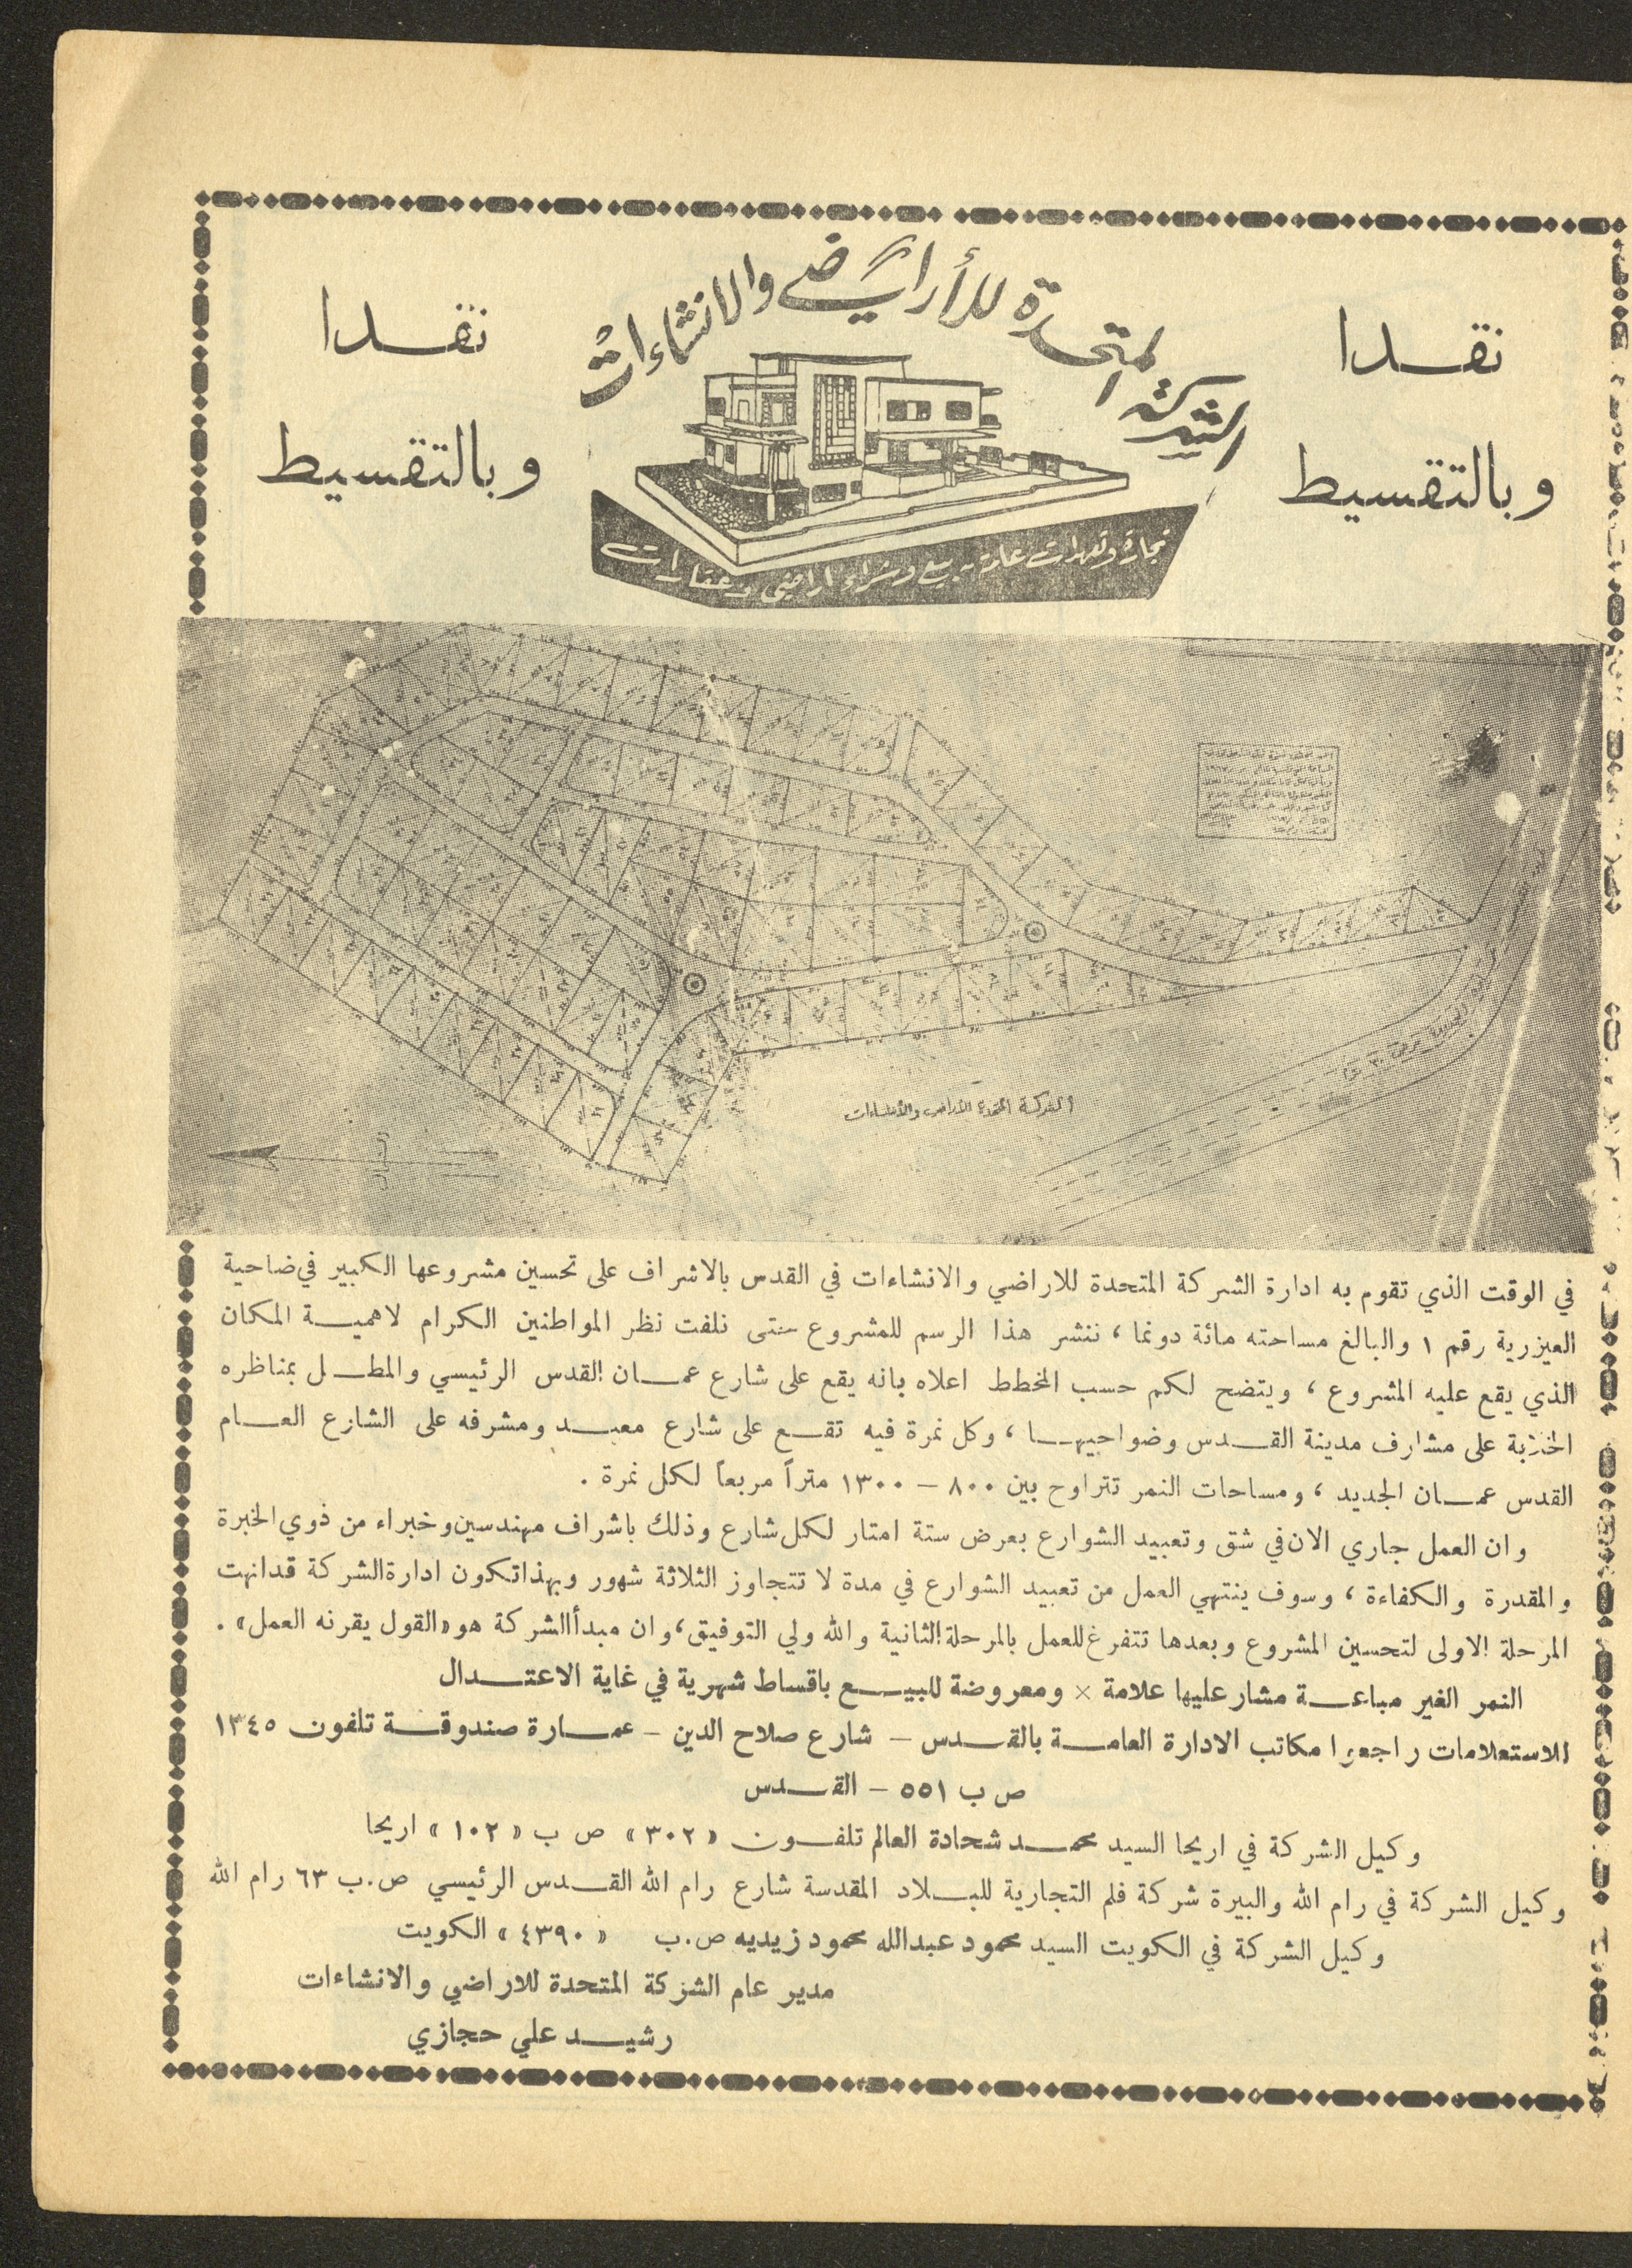 الشركة المتحدة للأراضي والانشاءات
نقدا
وبالتقسيط
نقدا
وبالتقسيط
تجارة وتعهدات عامة - بيع وشراء اراضي وعقارات
الشركة المتحدة للأراضي والأنشاءات
في الوقت الذي تقوم به ادارة الشركة المتحدة للاراضي والانشاءات في القدس بالاشراف على تحسين مشروعها الكبير في ضاحية
العيزرية رقم ١ والبالغ مساحته مائة دونما ، ننشر هذا الرسم للمشروع حتى نلفت نظر المواطنين الكرام لاهمية المكان
الذي يقع عليه المشروع ، ويتضح لكم حسب المخطط اعلاه بانه يقع على شارع عمان القدس الرئيسي والمطل بمناظره
الخلابة على مشارف مدينة القدس وضواحيها ، وكل نمرة فيه تقع على شارع معبد ومشرفه على الشارع العام
القدس عمان الجديد ، ومساحات النمر تتراوح بين ٨٠٠ – ١٣٠٠ متراً مربعاً لكل نمرة .
وان العمل جاري الان في شق وتعبيد الشوارع بعرض ستة امتار لكل شارع وذلك باشراف مهندسين وخبراء من ذوي الخبرة
والمقدرة والكفاءة ، وسوف ينتهي العمل من تعبيد الشوارع في مدة لا تتجاوز الثلاثة شهور وبهذا تكون ادارة الشركة قد انهت
المرحلة الاولى لتحسين المشروع وبعدها تتفرغ للعمل بالمرحلة الثانية والله ولي التوفيق ، وان مبدأ الشركة هو « القول يقرنه العمل » .
النمر الغير مباعة مشار عليها علامة × ومعروضة للبيع باقساط شهرية في غاية الاعتدال
للاستعلامات راجعوا مكاتب الادارة العامة بالقدس – شارع صلاح الدين – عمارة صندوقة تلفون ١٣٤٥
ص ب ٥٥١ – القدس
وكيل الشركة في اريحا السيد محمد شحادة العالم تلفون « ٣٠٢ » ص ب « ١٠٢ » اريحا
وكيل الشركة في رام الله والبيرة شركة فلم التجارية للبلاد المقدسة شارع رام الله القدس الرئيسي ص.ب ٦٣ رام الله
وكيل الشركة في الكويت السيد محمود عبدالله محمود زيديه ص.ب « ٤٣٩٠ » الكويت
مدير عام الشركة المتحدة للاراضي والانشاءات
رشيد علي حجازي